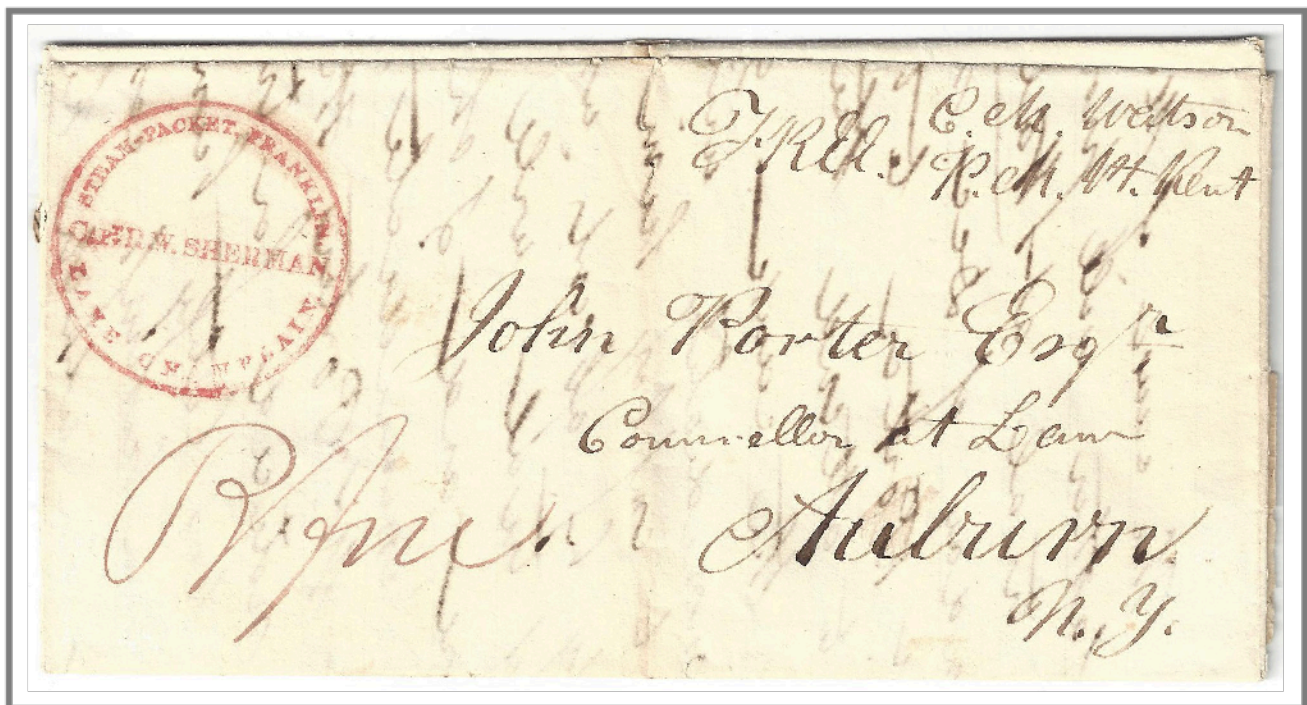 STEAM-PACKET-FRANKLIN
R.W. SHERMAN
LAKE CHAMPLAIN
Free. E. M. Watson
P. M. Pt. Kent
John Porter Esqr
Councellor at Law
Auburn
N. Y.